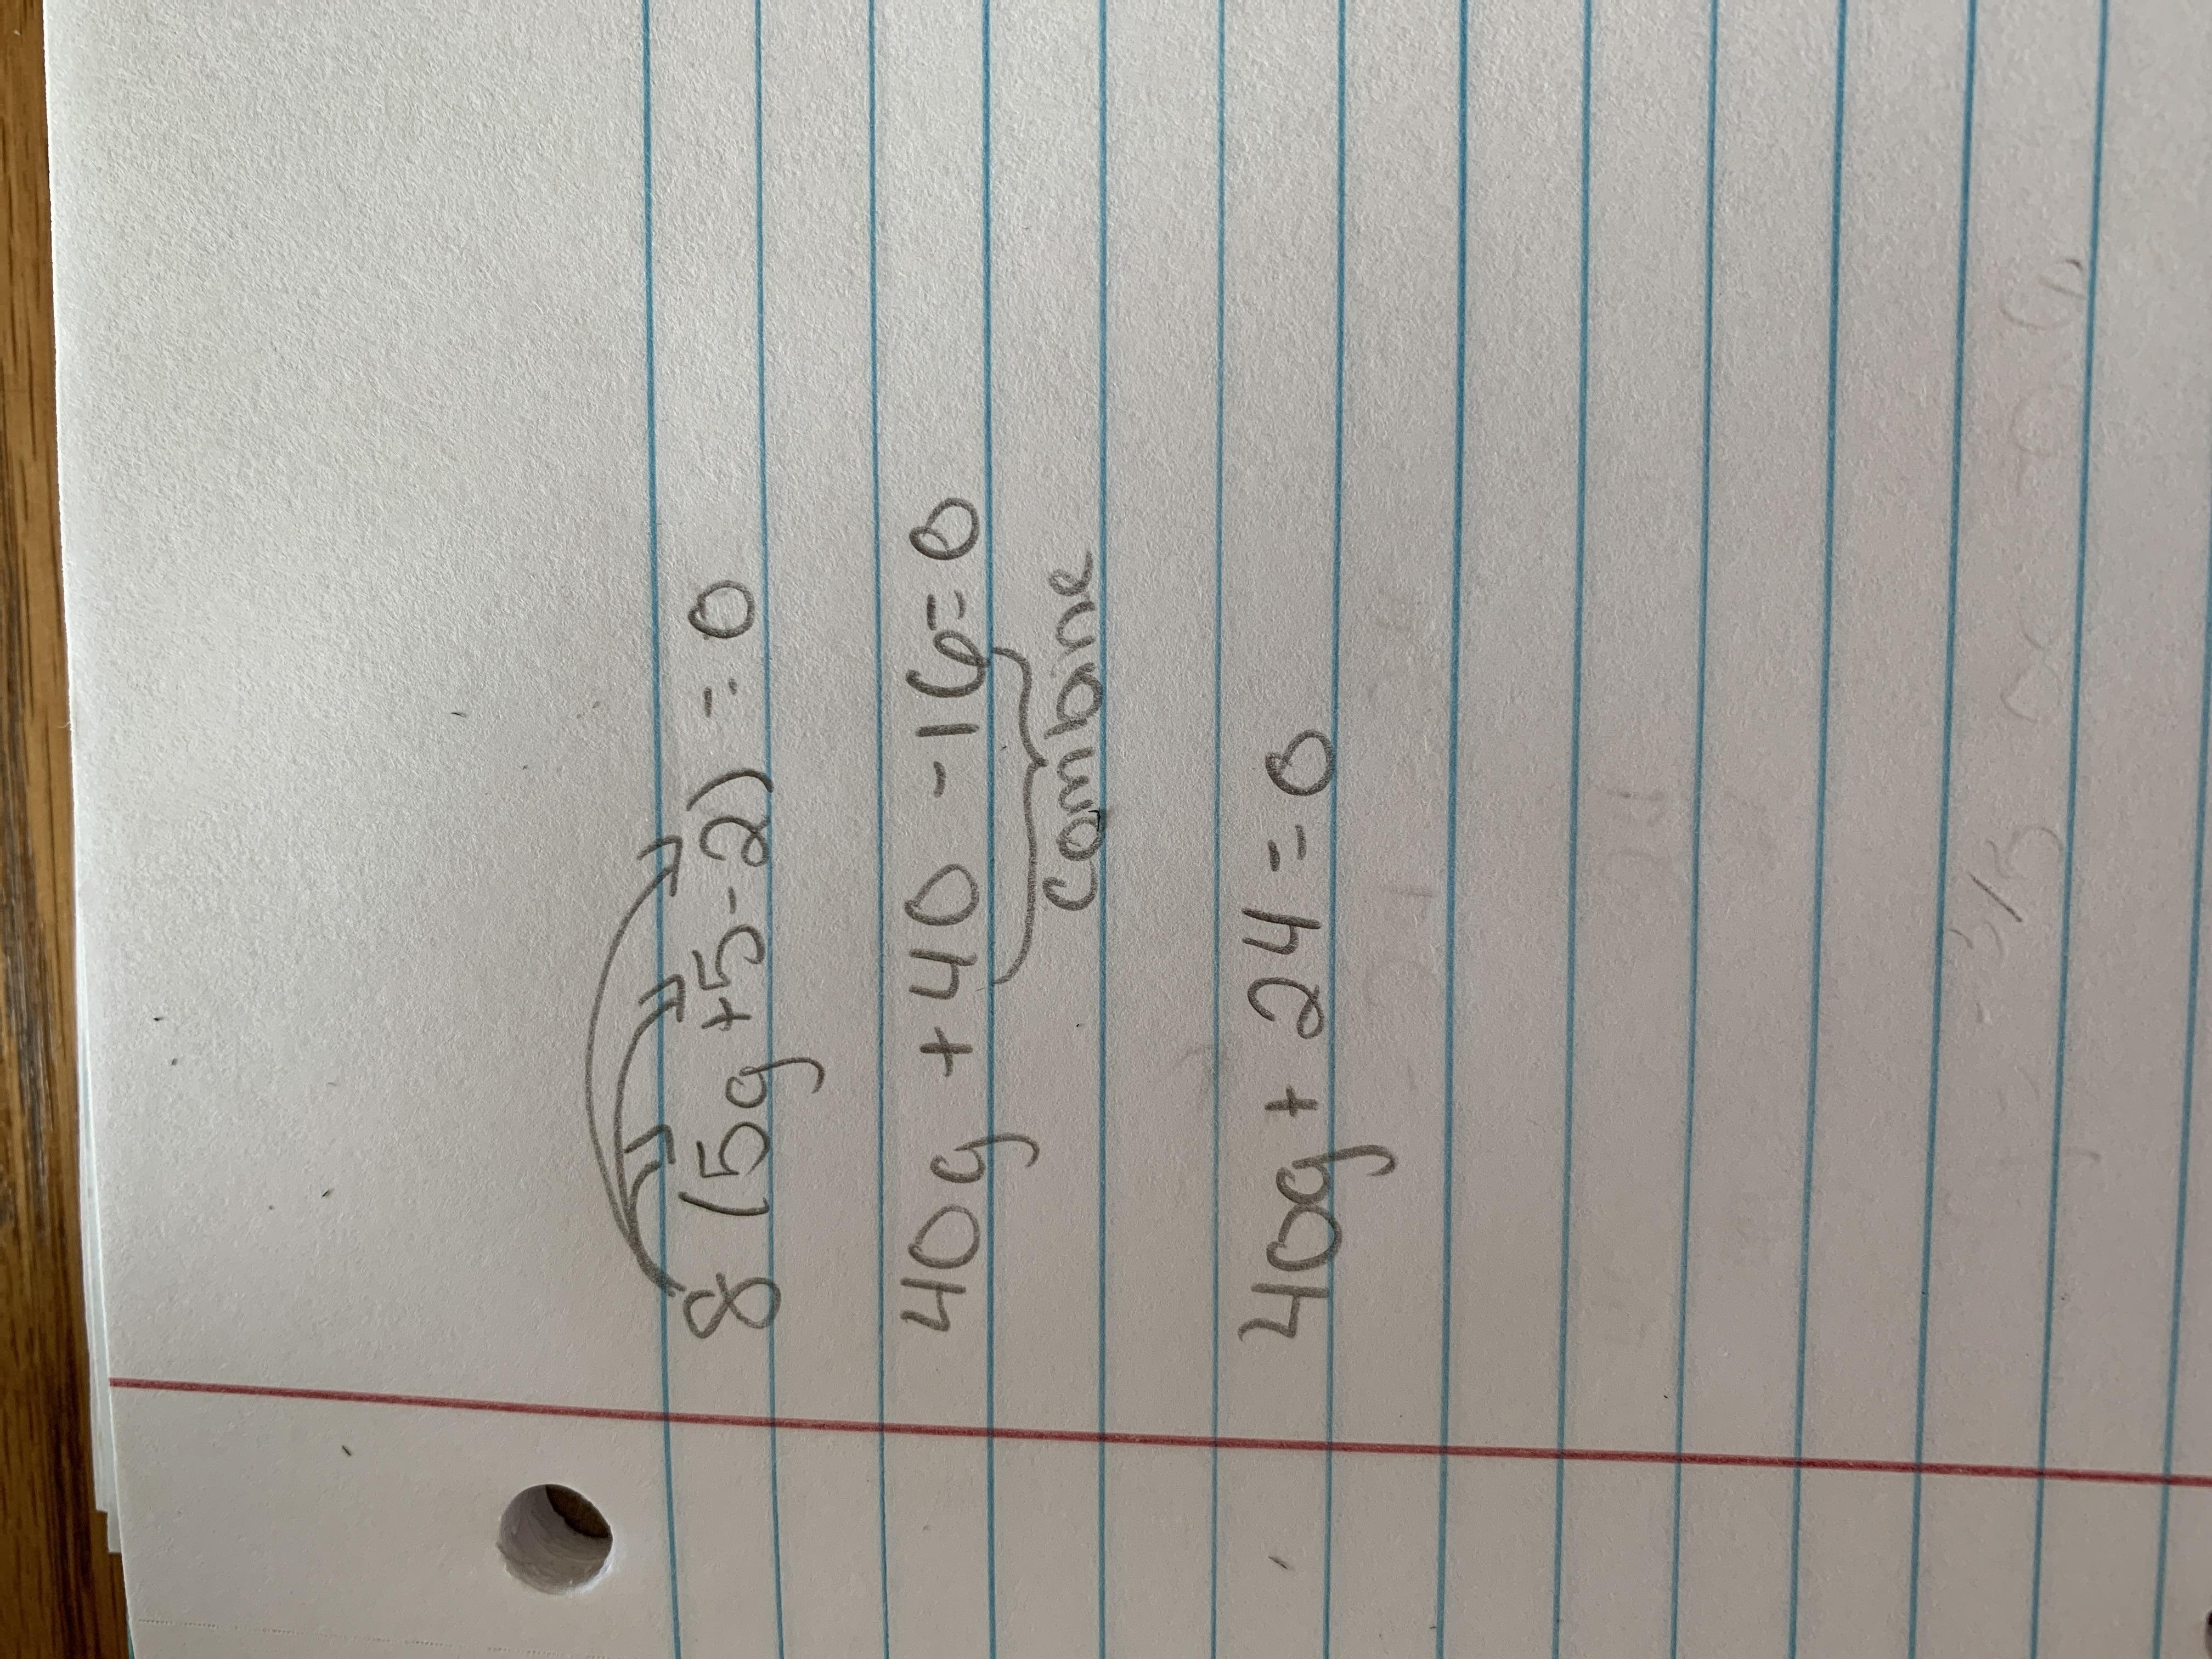 8 (5g +5-2) = 0
40g +40 -16=0
Combine
40g + 24 = 0